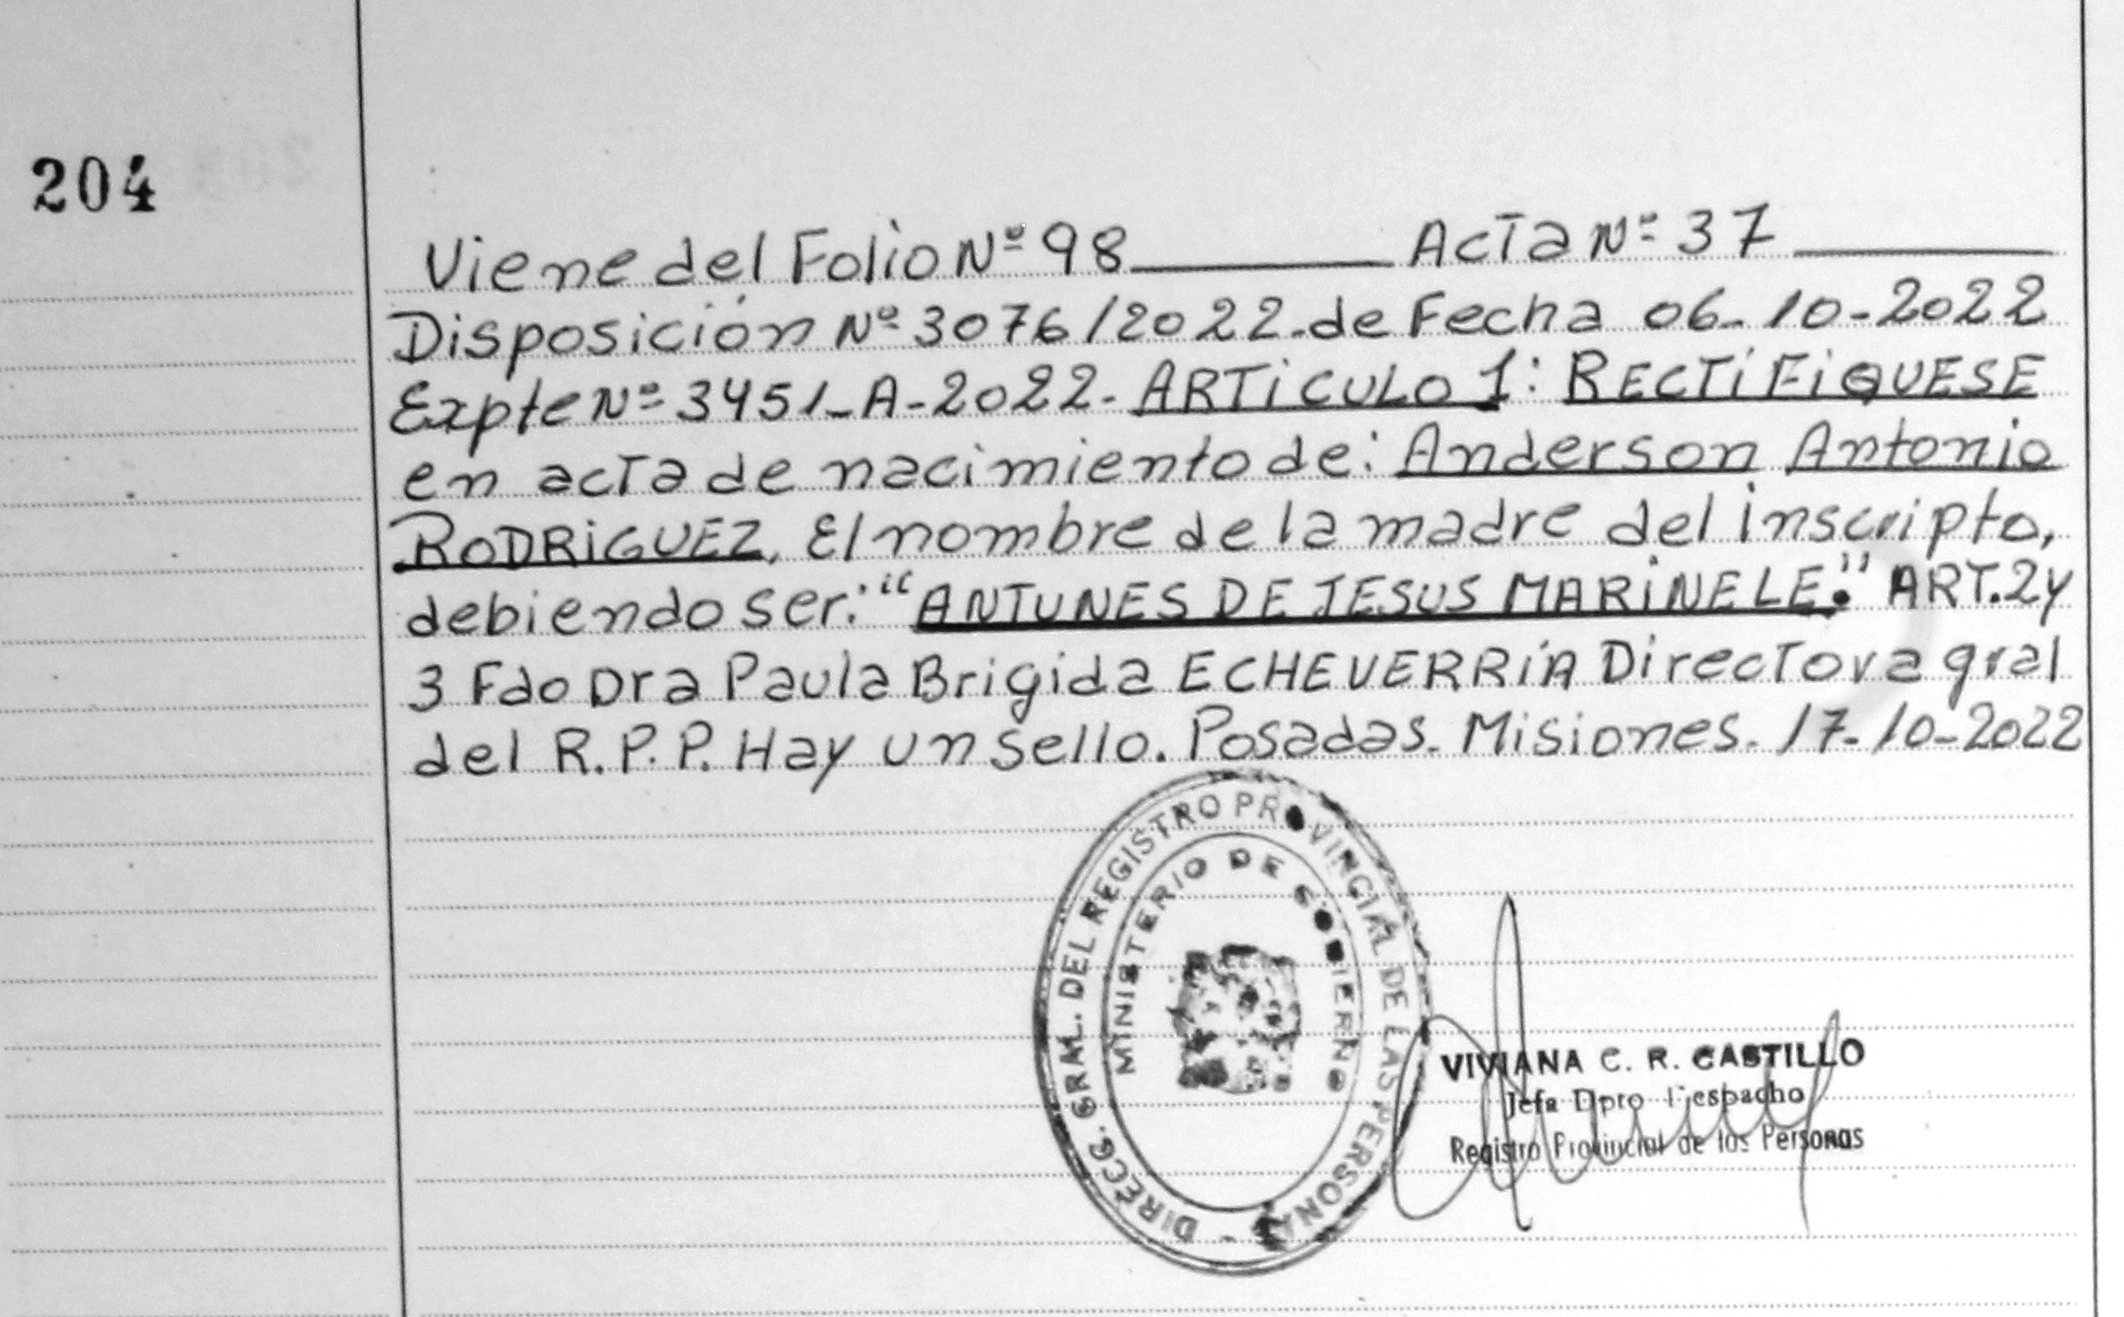 204
Viene del Folio Nº 98 Acta Nº 37
Disposición Nº 3076/2022.de Fecha 06-10-2022
Expte Nº 3451-A-2022. ARTICULO 1: RECTIFIQUESE
en acta de nacimiento de: Anderson Antonio
RODRIGUEZ, El nombre de la madre del inscripto,
debiendo ser: "ANTUNES DE JESUS MARINELE." ART.2y
3 Fdo Dra Paula Brigida ECHEVERRÍA Directora gral
del R.P.P. Hay un sello. Posadas. Misiones. 17-10-2022
DIRECG. GRAL. DEL REGISTRO PROVINCIAL DE LAS PERSONAS -
MINISTERIO DE GOBIERNO
VIVIANA C. R. CASTILLO
Jefa Dpto Despacho
Registro Provincial de las Personas